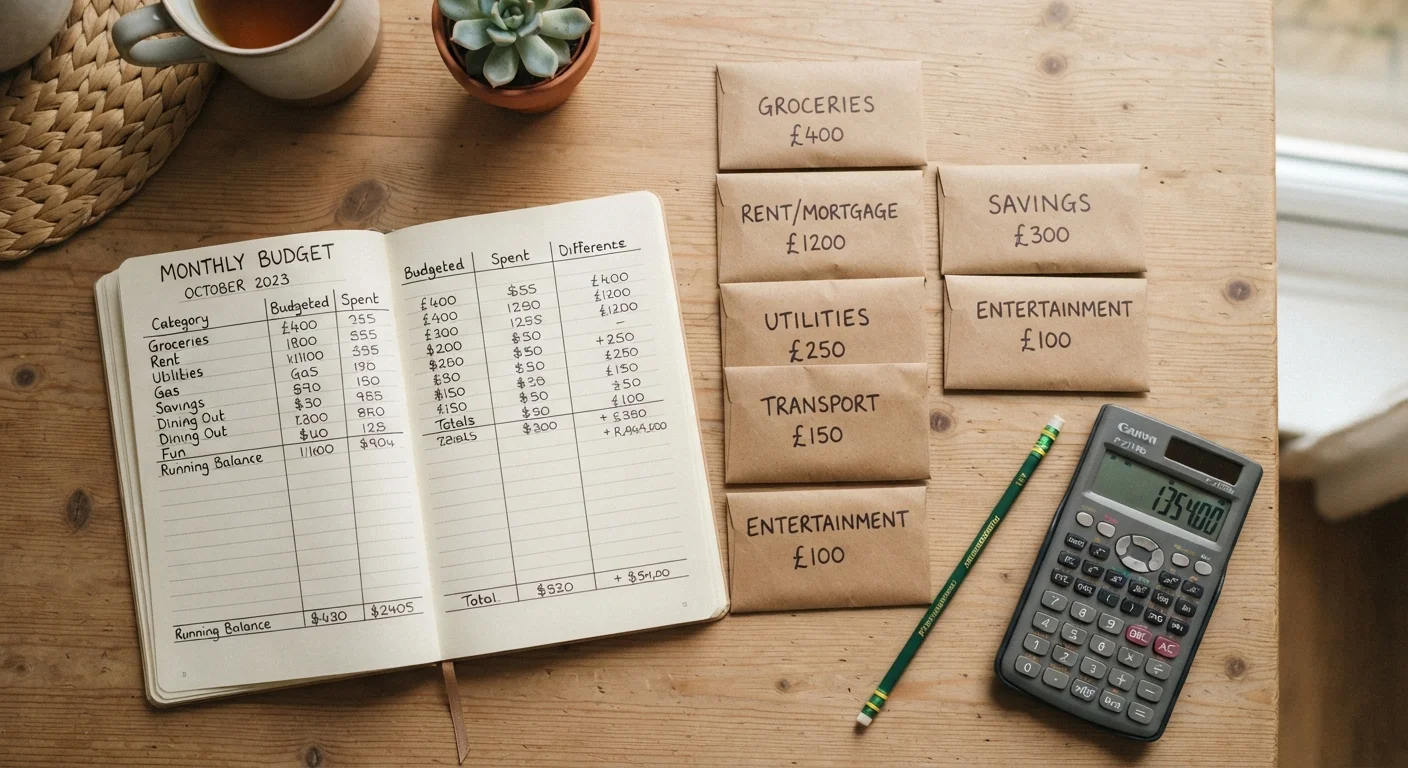 MONTHLY BUDGET
OCTOBER 2023
Category Budgeted Spent
Groceries £400 355
Rent 1800 555
Utilities 395
Gas Gas 190
Savings $90 150
Dining Out $30 985
Dining Out 850
Fun 128
Running Balance $904
Running Balance $430 $2405
Budgeted Spent Difference
£400 $55 £400
£400 1290 £1200
£300 1255 £1200
$200 $50 —
$250 $50 +250
£90 $50 £250
$150 £150
£150 $50 £50
Totals $90 £100
$300 + £380
Total $520
GROCERIES
£400
RENT/MORTGAGE
£1200
UTILITIES
£250
TRANSPORT
£150
ENTERTAINMENT
£100
SAVINGS
£300
ENTERTAINMENT
£100
Canon
135400
7 8 9 AC
4 5 6 × ÷
1 2 3 + −
0 . =